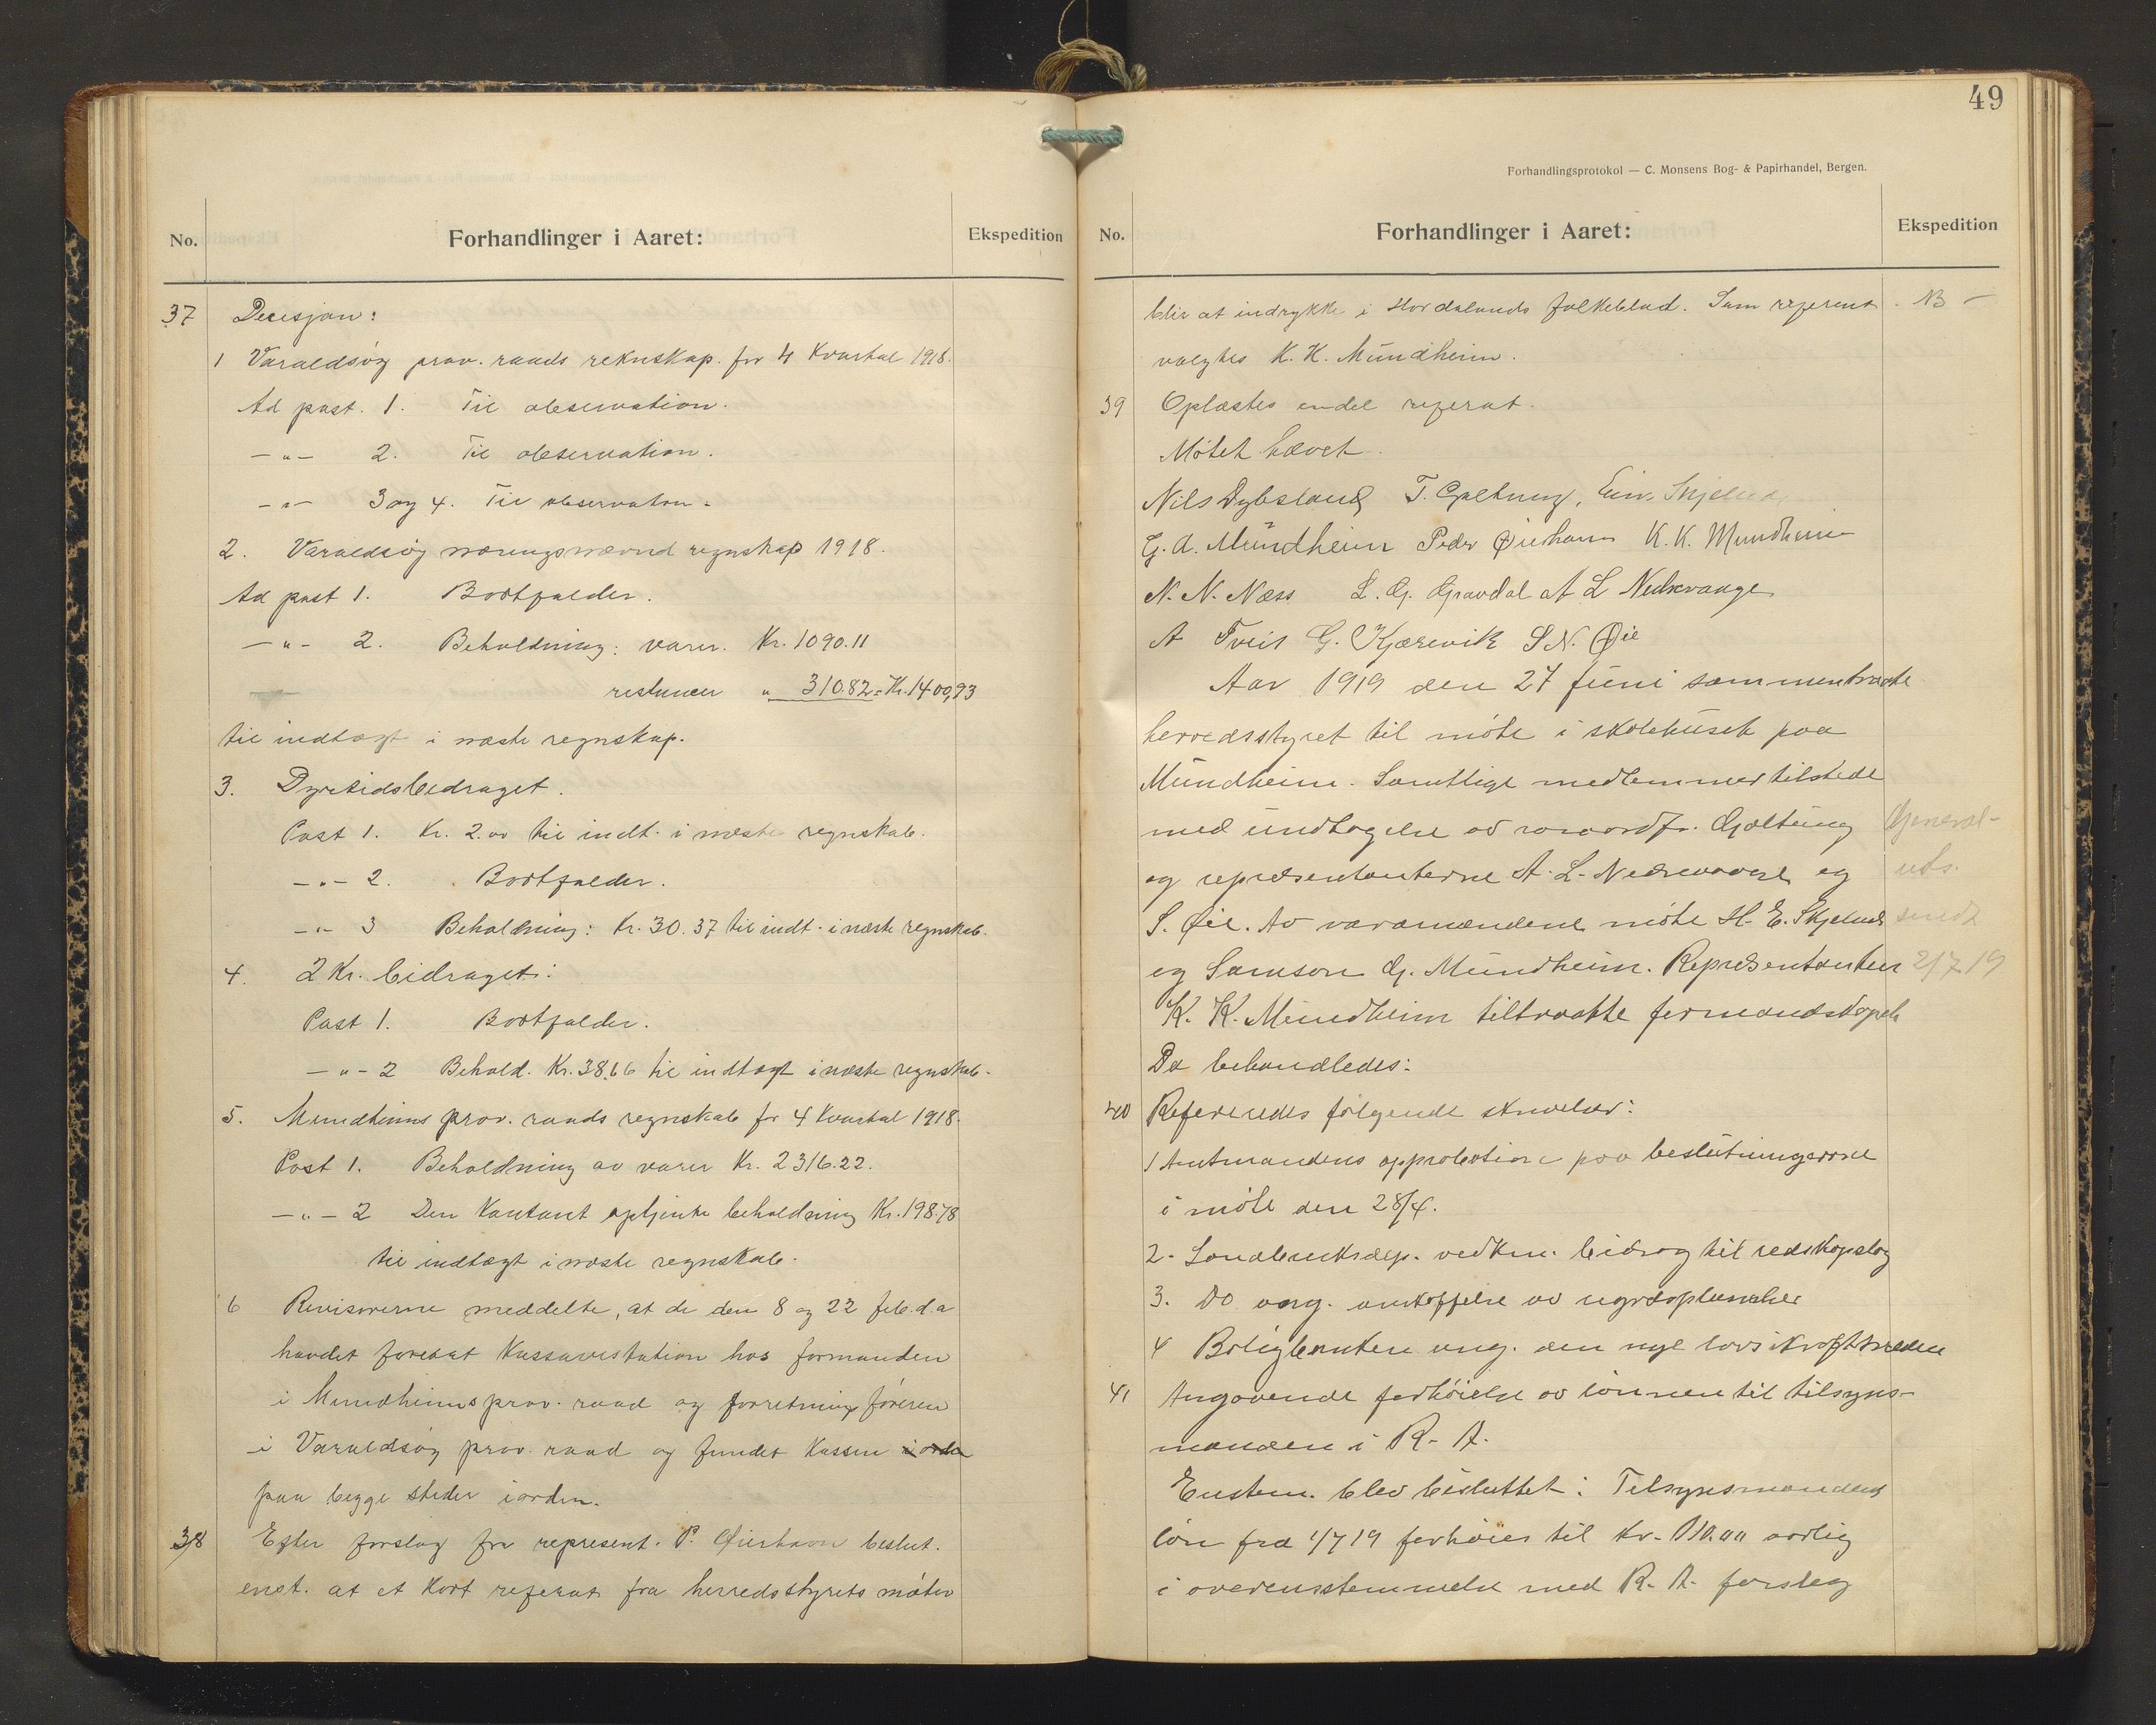 No.
Forhandlinger i Aaret:
Ekspedition
37 Decisjon:
1 Varaldsøy prov. raads reknskap. for 4 Kvartal 1918.
Ad post. 1. Til observation.
–"– 2. Til observation.
–"– 3 og 4. Til observation.
2. Varaldsøy næringsnævnd regnskap 1918.
Ad post 1. Bortfalder.
–"– 2. Beholdning: varer. Kr. 1090.11
restancer " 310.82 = Kr. 1400,93
til indtægt i næste regnskap.
3. Dyrtidsbidraget.
Post 1. Kr. 2.00 til indt. i næste regnskab.
–"– 2. Bortfalder.
–"– 3 Beholdning: Kr. 30.37 til indt. i næste regnskab.
4. 2 Kr. bidraget:
Post 1. Bortfalder.
–"– 2 Behold. Kr. 38.66 til indtægt i næste regnskab.
5. Mundheims prov. raads regnskab for 4 Kvartal 1918.
Post 1. Beholdning av varer Kr. 2316.22.
–"– 2 Den Kontant optjente beholdning Kr. 198.78
til indtægt i næste regnskab.
6 Revisorerne meddelte, at de den 8 og 22 feb. d.a
havdet foretat Kassavistation hos formanden
i Mundheims prov. raad og forretningsføreren
i Varaldsøy prov. raad og fundet Kassen i orden
paa begge steder i orden.
38 Efter forslag fra represent. P. Øierhavn beslut.
enst. at et Kort referat fra herredsstyrets møter
49
Forhandlingsprotokol — C. Monsens Bog- & Papirhandel, Bergen.
No.
Forhandlinger i Aaret:
Ekspedition
blir at indrykke i Hordalands folkeblad. Som referent NB –
valgtes K. K. Mundheim.
39 Oplæstes endel referat.
Møtet hævet.
Nils Dybsland T. Gjeltnng, Ein. Skjelnes
G. A. Mundheim Peder Øierhavn K. K. Mundheim
N. N. Næss L. G. Gravdal A L Nedrevaage
A Tveit G. Kjærevik S N. Øie
Aar 1919 den 27 juni sammentraadte
herredsstyret til møte i skolehuset paa
Mundheim. Samtlige medlemmer tilstede
med undtagelse av varaordf. Gjeltung General-
og repræsentanterne A. L. Nedrevaage og uts.
S. Øie. Av varamændene møtte H. E. Skjelnes sendt
og Samson G. Mundheim. Repræsentanten 2/7 19
K. K. Mundheim tiltraatte formandskapet
Da behandledes:
40 Refereredes følgende skrivelser:
1 Amtmandens approbation paa beslutningerne
i møte den 28/4.
2. Landbruksdep. vedkm. bidrag til redskapslag
3. Do ang. anskaffelse av
4 Boliginspektøren ang. den nye lovs ikrafttræden
41 Angaaende forhøielse av lønnen til tilsyns-
manden i R. A.
Enstem. blev besluttet: Tilsynsmandens
løn fra 1/7 19 forhøies til kr. aarlig
i overensstemmelse med R. A. forslag